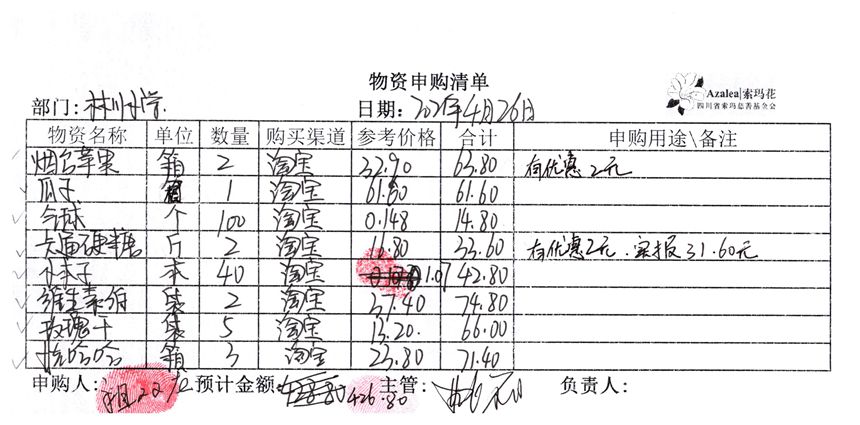 物资申购清单
Azalea 索玛花
四川省索玛慈善基金会
部门: 林川小学 日期: 2021年4月26日
物资名称 单位 数量 购买渠道 参考价格 合计 申购用途\备注
烟台苹果 箱 2 淘宝 32.90 63.80 有优惠2元
瓜子 箱 1 淘宝 61.60 61.60
气球 个 100 淘宝 0.148 14.80
大通硬糖 斤 2 淘宝 16.80 33.60 有优惠2元.实报31.60元
小本子 本 40 淘宝 1.07 42.80
维生素 袋 2 淘宝 37.40 74.80
玫瑰干 袋 5 淘宝 13.20 66.00
娃哈哈 箱 3 淘宝 23.80 71.40
申购人: 预计金额: 426.80 主管: 负责人: